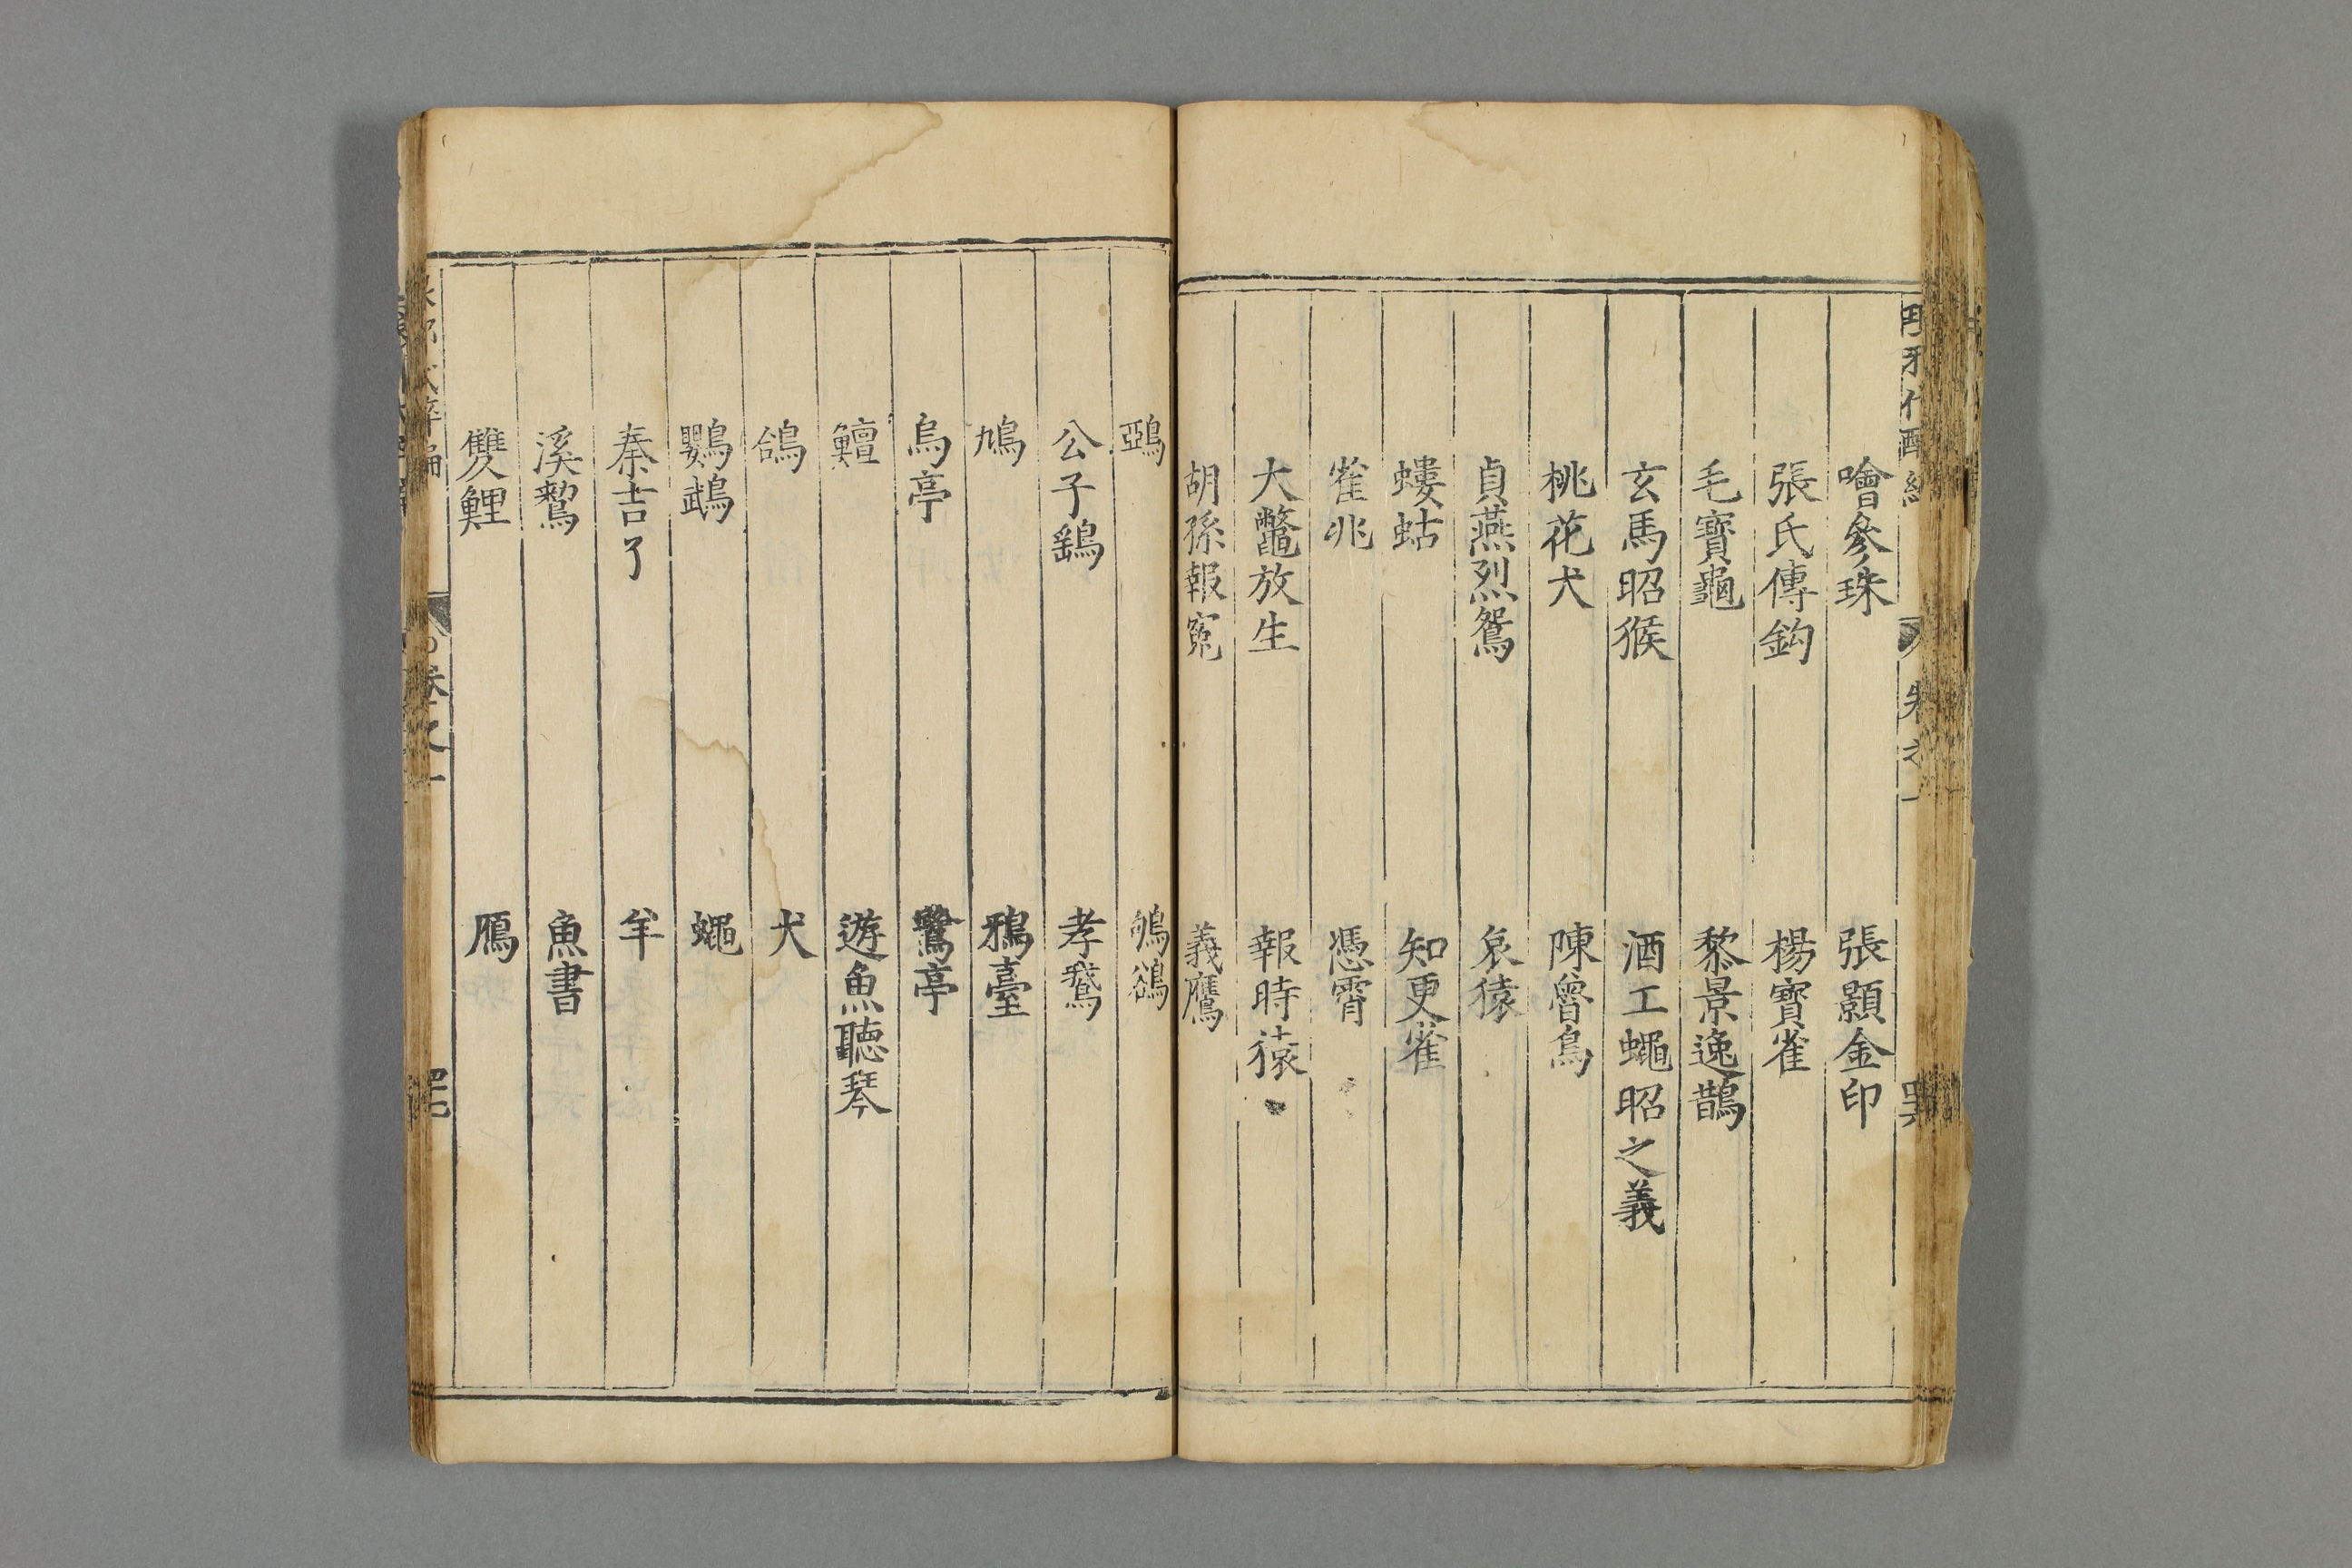 噲參珠 張顥金印
張氏傳鈎 楊寶雀
毛寶龜 黎景逸鵲
玄馬昭猴 酒工蠅昭之義
桃花犬 陳曾鳥
貞燕烈鴛 哀猿
螻蛄 知更雀
雀兆 憑霄
大鼈放生 報時猿
胡孫報寃 義鷹
鵶 鴝鵒
公子鷂 孝鵞
鳩 鴉臺
烏亭 鷺亭
鱣 遊魚聽琴
鴿 犬
鸚鵡 蠅
秦吉了 羊
溪鷘 魚書
雙鯉 鴈
卷之一